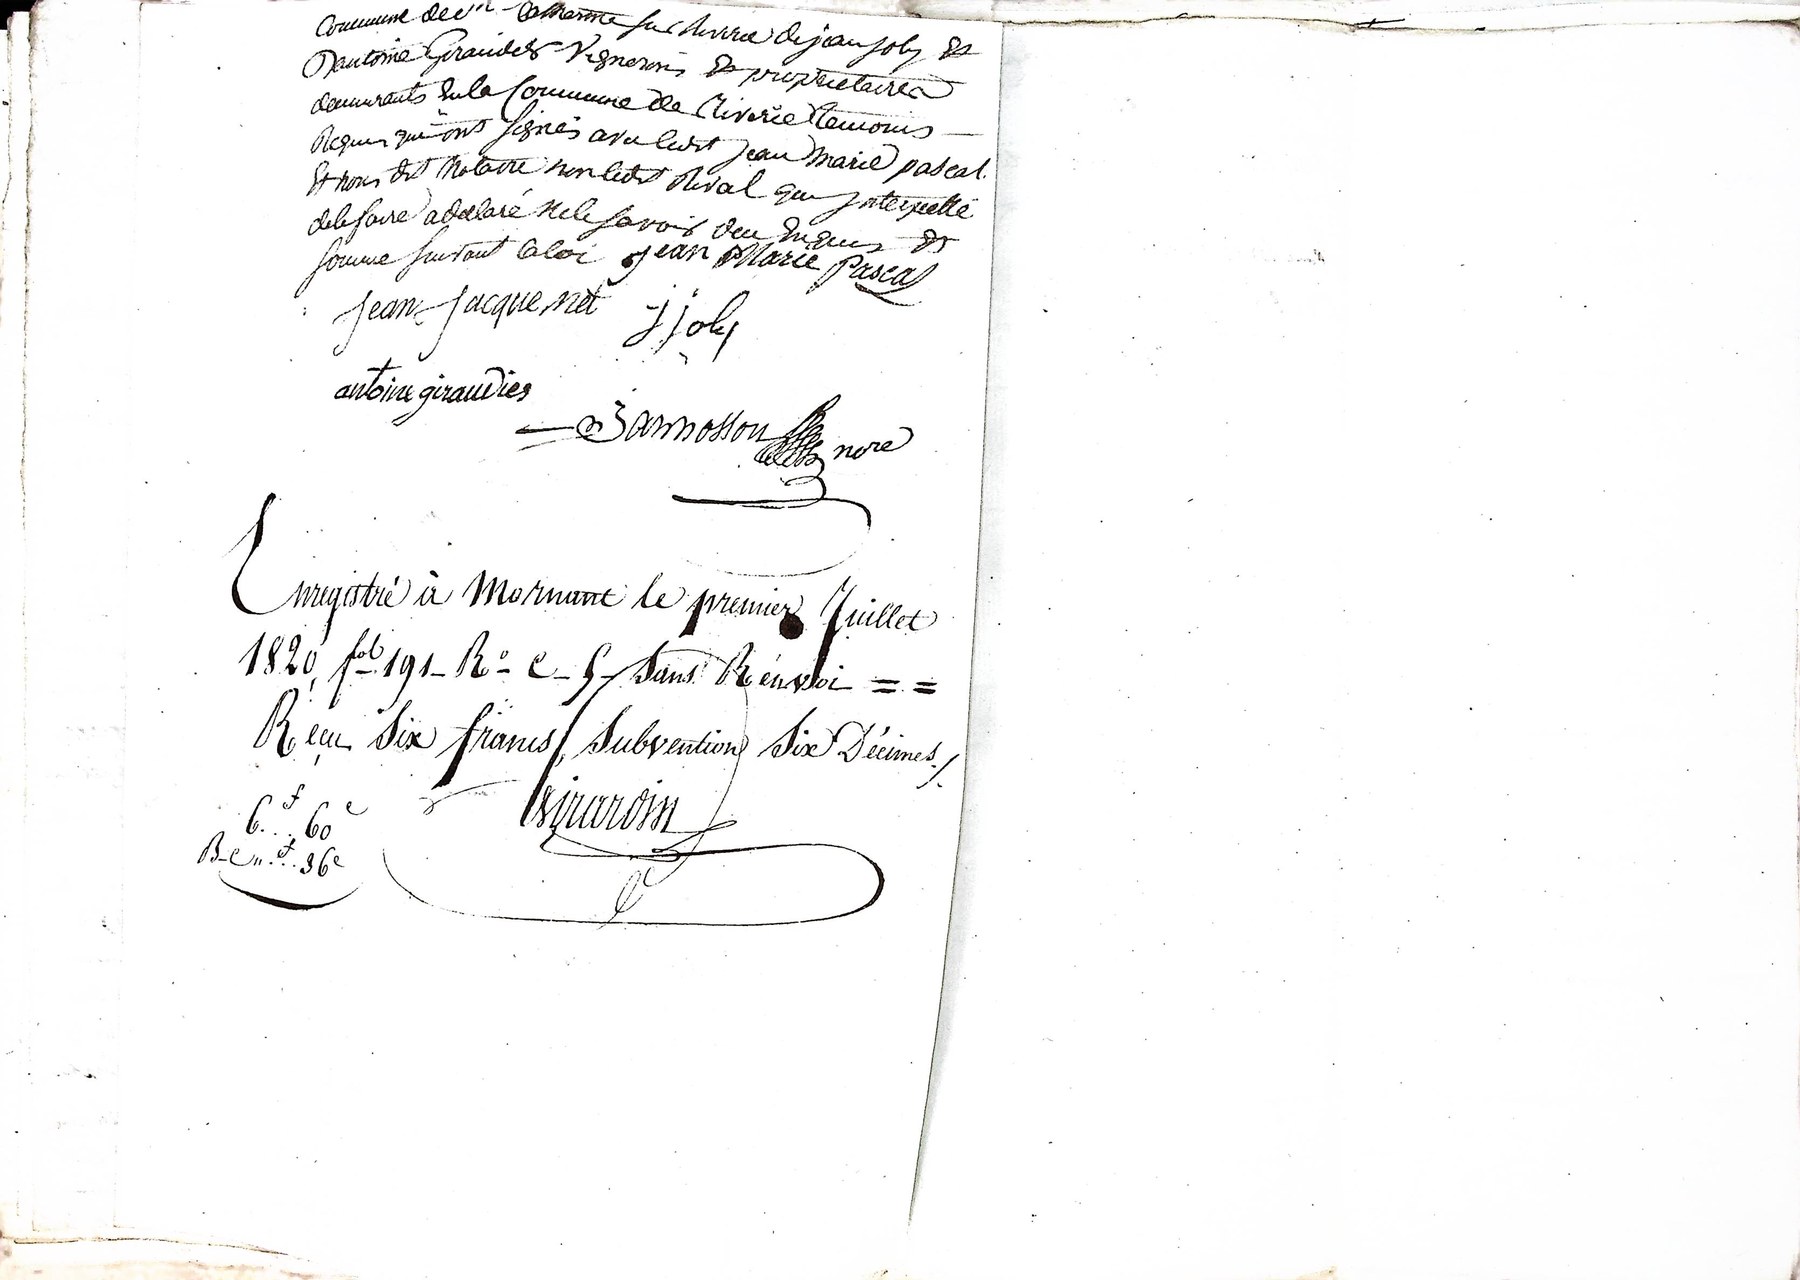 Commune de Ste Catherine sur Riverie de jean joly Et
D'antoine Giraudier Vignerons Et proprietaires
demeurants En la Commune de Riverie temoins
Requis qui ont signés avec ledit jean Marie pascal
Et nous dit Notaire non ledit Rival qui jnterpellé
de le faire a declaré ne le savoir de ce Enquis Et
somme suivant la loi jean Marie Pascal
jean-jacquemet jjoly
antoine giraudier
nore
Enregistré à Mornant le premier Juillet
1820, fol 191 Ro C 5 Sans Renvoi = =
Reçu Six francs, Subvention Six Décimes./.
Girardin
6.f.. 60c
36c